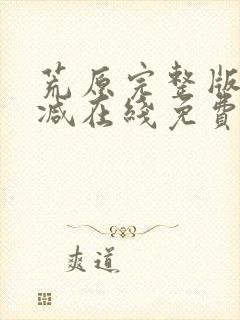 荒原完整版
减在綫免費
爽道